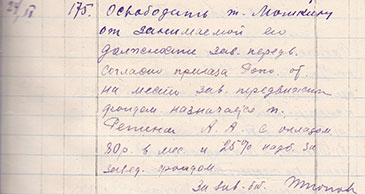 24/IV 175. Освободить т. Мошкину
от занимаемой ею
должности зав. передв.
согласно приказа об.
на место зав. передвижн.
фондом назначается т.
Фетина А. А. с окладом
80р. в мес. и 25% надб. за
завед. фондом.
За зав. бт.